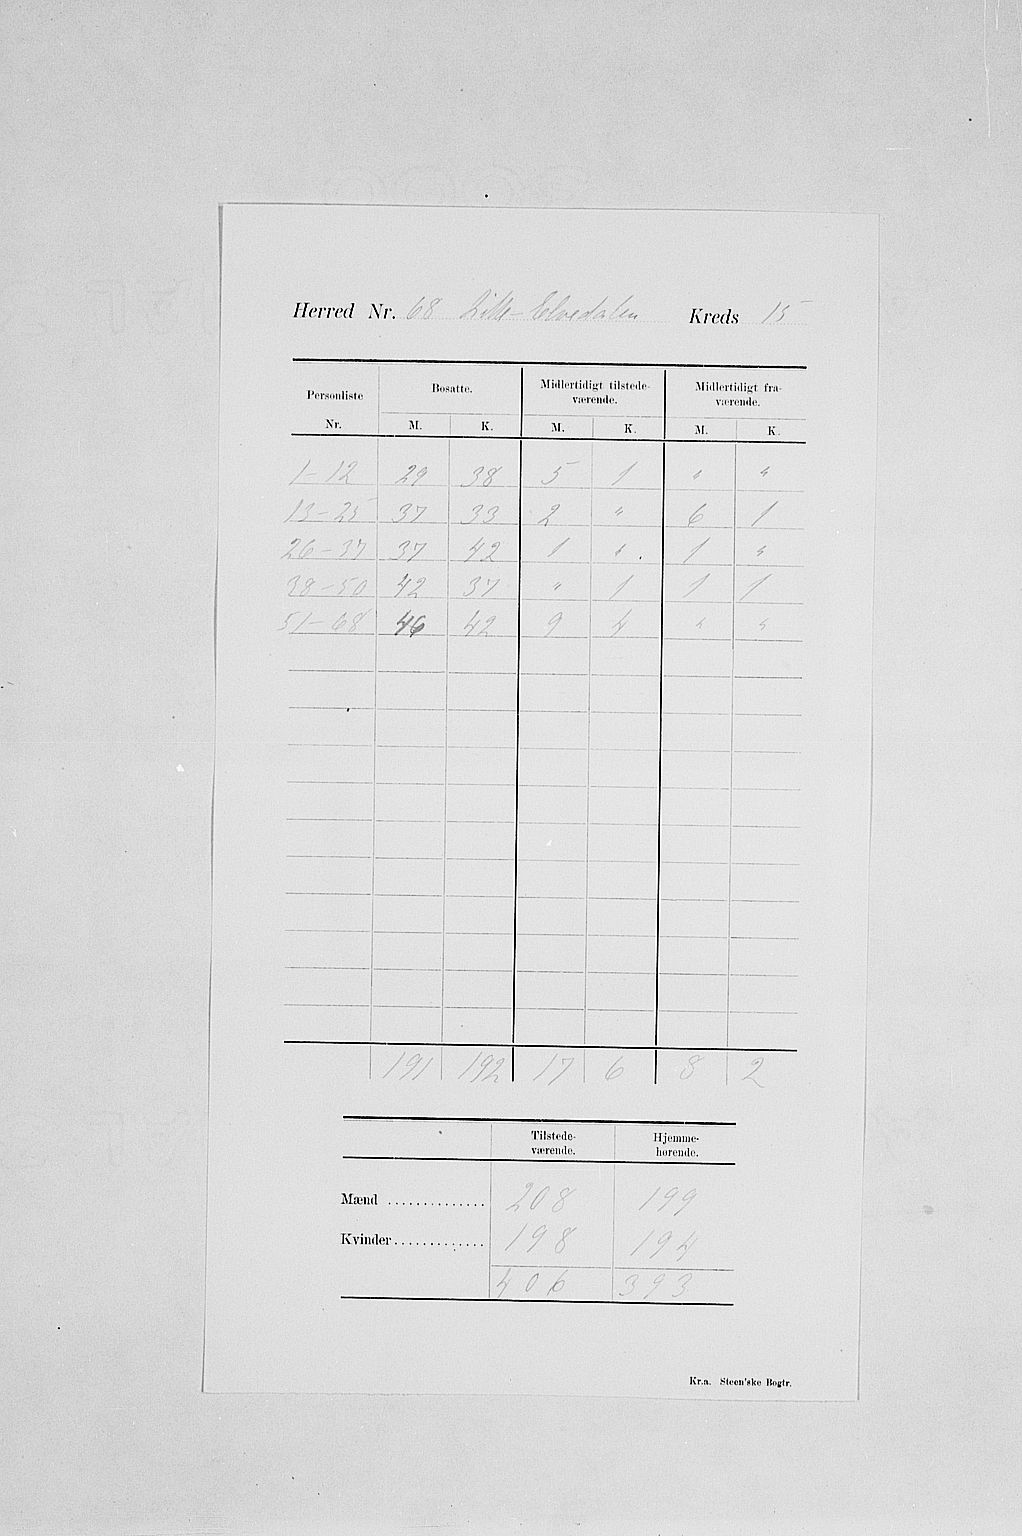 Herred Nr. 68 Lille-Elvedalen Kreds 15
Personliste Nr. Bosatte. Midlertidigt tilstede-værende. Midlertidigt fra-værende.
M. K. M. K. M. K.
1-12 29 38 5 1 " "
13-25 37 33 2 " 6 1
26-37 37 42 1 " 1 "
38-50 42 37 " 1 1 1
51-68 46 42 9 4 " "
191 192 17 6 8 2
Tilstede-værende. Hjemme-hørende.
Mænd .............. 208 199
Kvinder............. 198 194
406 393
Kr.a. Steen'ske Bogtr.